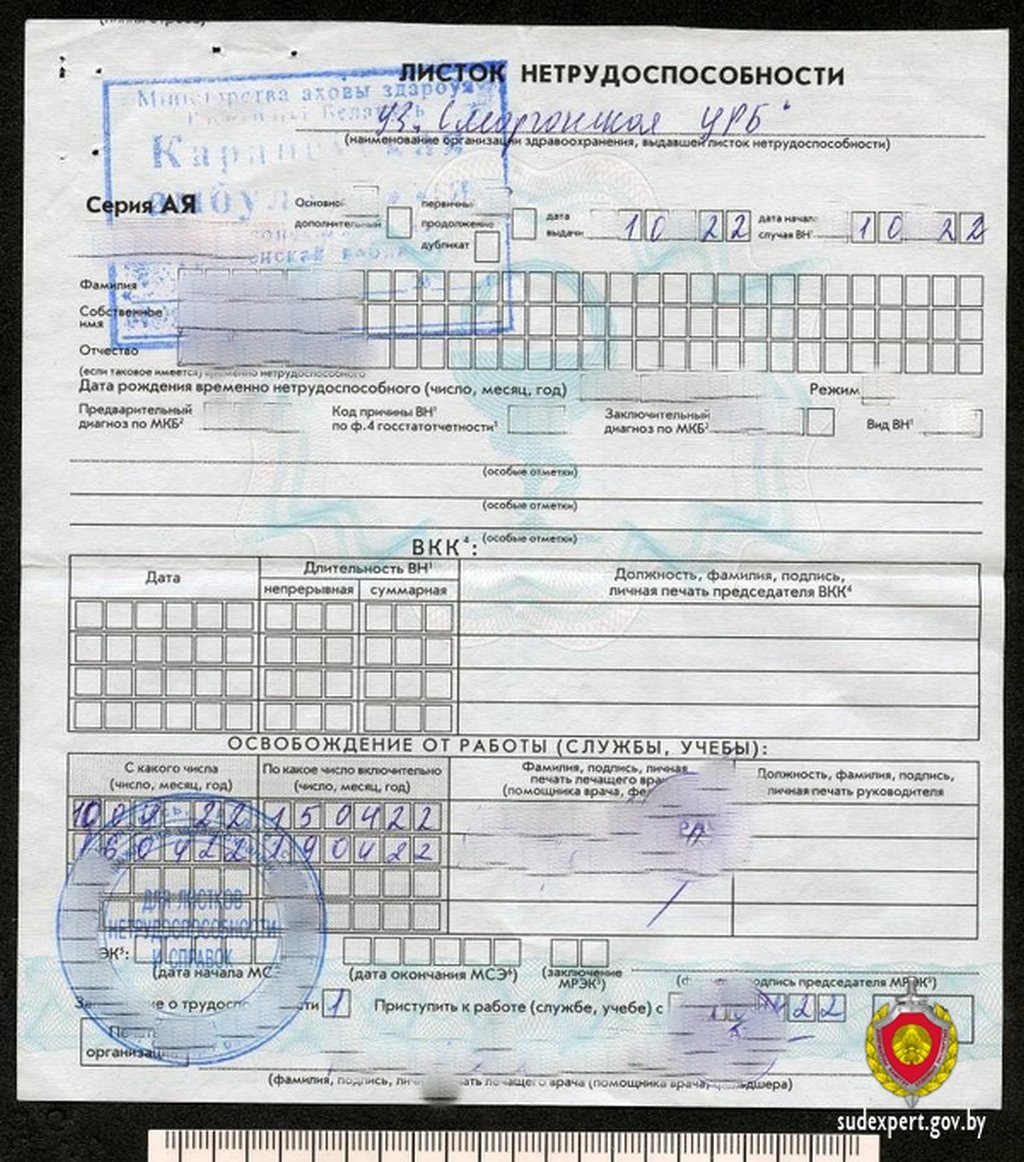 ЛИСТОК НЕТРУДОСПОСОБНОСТИ
УЗ "Сморгонская ЦРБ"
(наименование организации здравоохранения, выдавшей листок нетрудоспособности)
Міністэрства аховы здароўя
Серия АЯ
дополнительный
продолжение
дубликат
дата выдачи 10 22
дата начала случая ВН¹ 10 22
Фамилия
Собственное имя
Отчество
(если таковое имеется) временно нетрудоспособного
Дата рождения временно нетрудоспособного (число, месяц, год)
Режим
Предварительный диагноз по МКБ²
Код причины ВН¹ по ф.4 госстатотчетности³
Заключительный диагноз по МКБ²
Вид ВН¹
(особые отметки)
(особые отметки)
(особые отметки)
ВКК⁴:
Дата
Длительность ВН¹
непрерывная
суммарная
Должность, фамилия, подпись,
личная печать председателя ВКК⁴
ОСВОБОЖДЕНИЕ ОТ РАБОТЫ (СЛУЖБЫ, УЧЕБЫ):
С какого числа
(число, месяц, год)
По какое число включительно
(число, месяц, год)
Фамилия, подпись, личная
печать лечащего
(помощника врача,
Должность, фамилия, подпись,
личная печать руководителя
22 150422
160422 190422
ДЛЯ ЛИСТКОВ
НЕТРУДОСПОСОБНОСТИ
И СПРАВОК
(дата начала
(дата окончания МСЭ⁶)
(заключение МРЭК⁵)
председателя МРЭК⁵)
о
1
Приступить к работе (службе, учебе) с 22
организации
(фамилия, подпись, лечащего врача (помощника врача,
sudexpert.gov.by